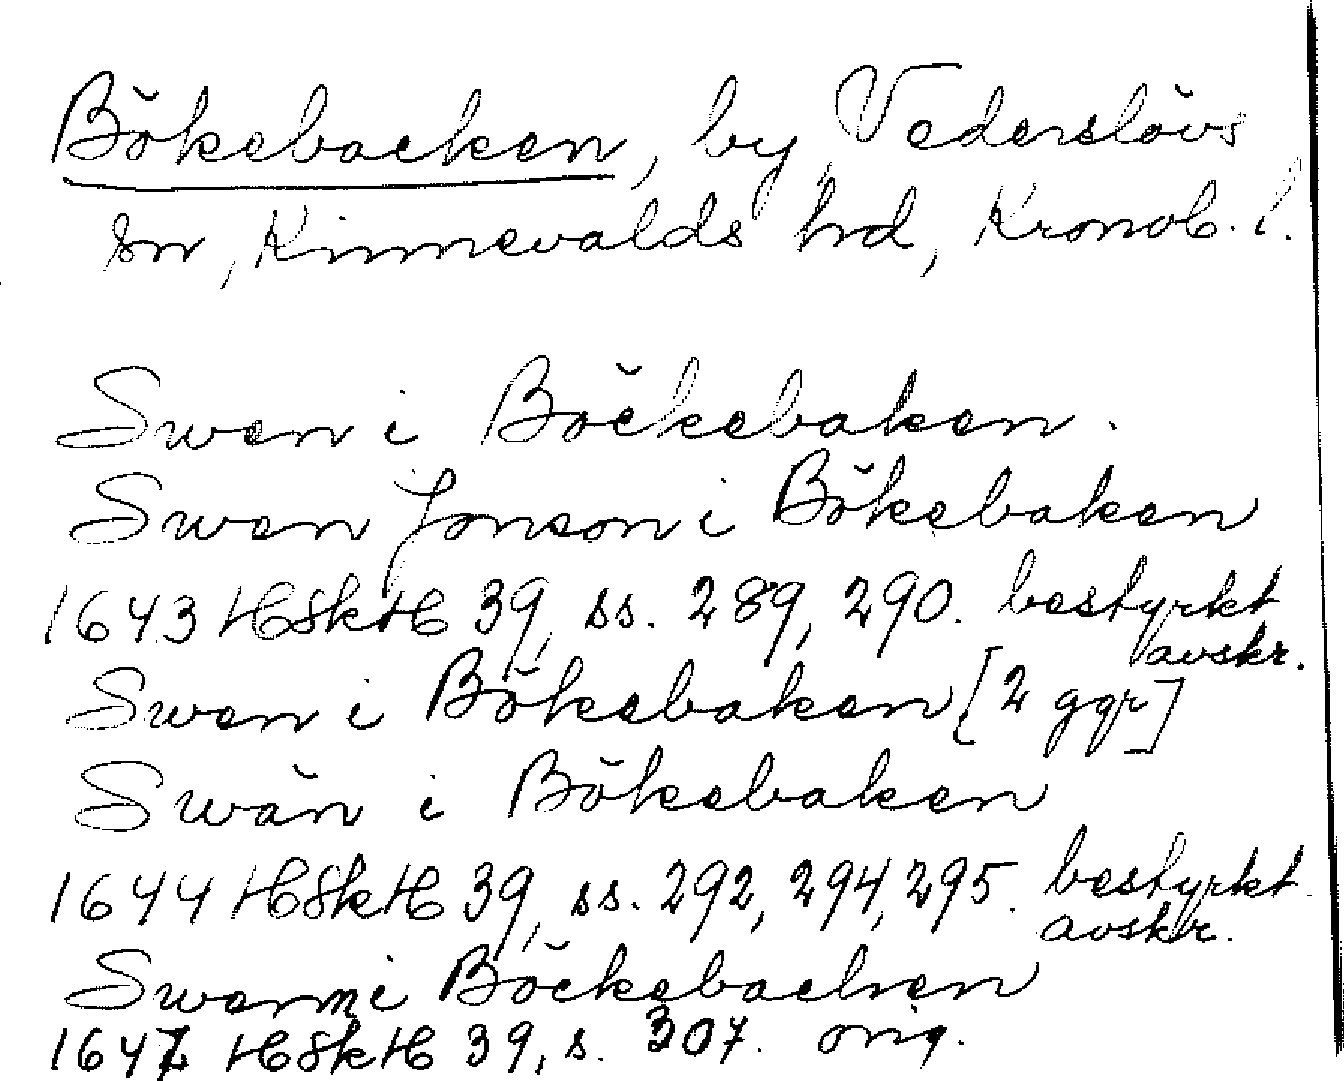 Bökebacken, by, Vederslövs
sn, Kinnevalds hrd, Kronob. l.
Swen i Böckebaken.
Swen Jonson i Bökebaken
1643 HSkH 39, ss. 289, 290. bestyrkt
avskr.
Swen i Bökebaken [2 ggr]
Swän i Bökebaken
1644 HSkH 39, ss. 292, 294, 295. bestyrkt
avskr.
Swenn i Böckebachen
1647 HSkH 39, s. 307. orig.